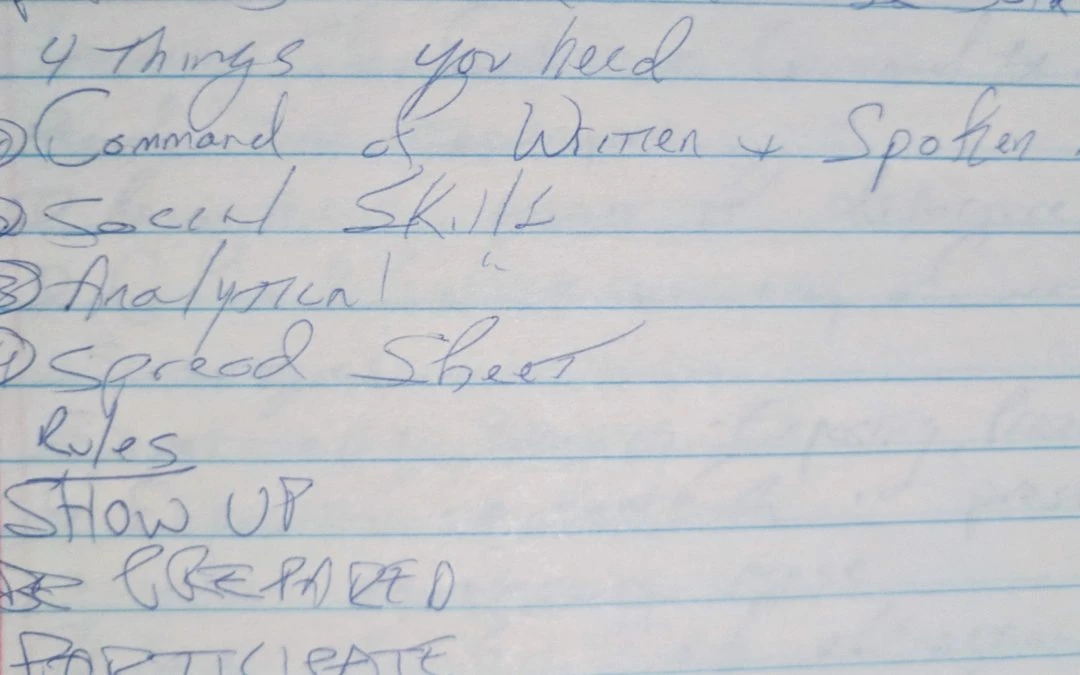 4 Things you need
① Command of Written + Spoken
② Social Skills
③ Analytical "
④ Spread Sheet
Rules
SHOW UP
BE PREPARED
PARTICIPATE